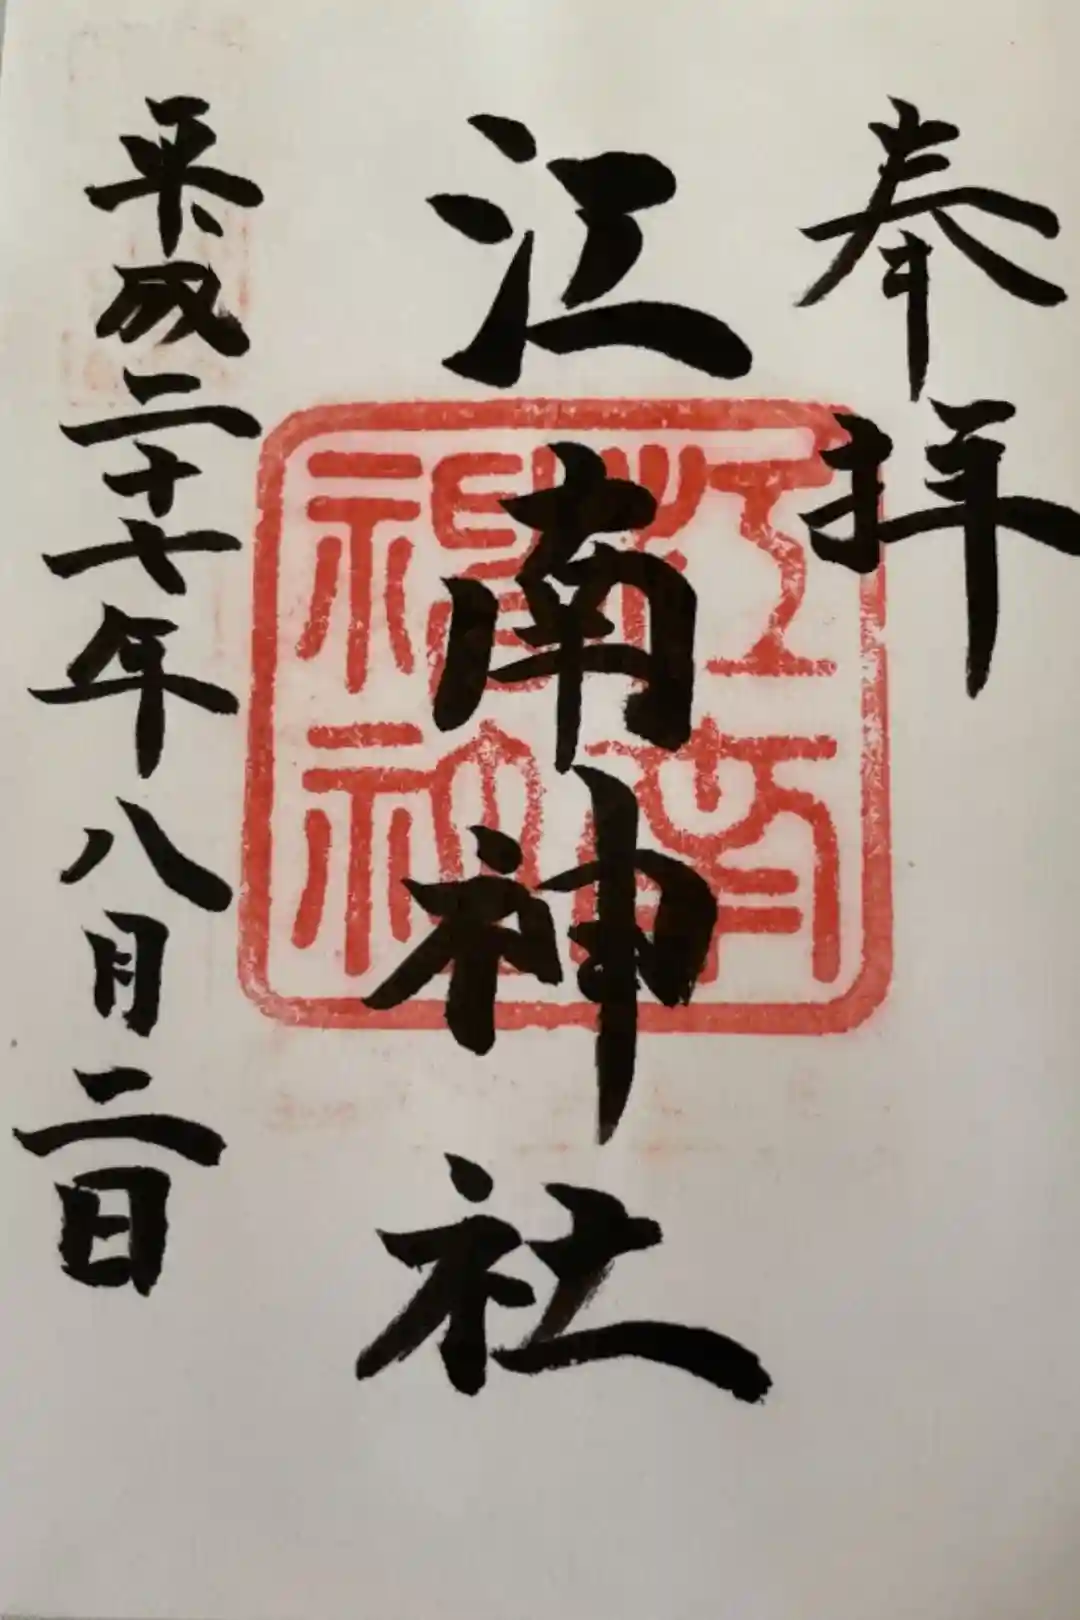 奉拝
江南神社
平成二十七年八月二日
江南
神社